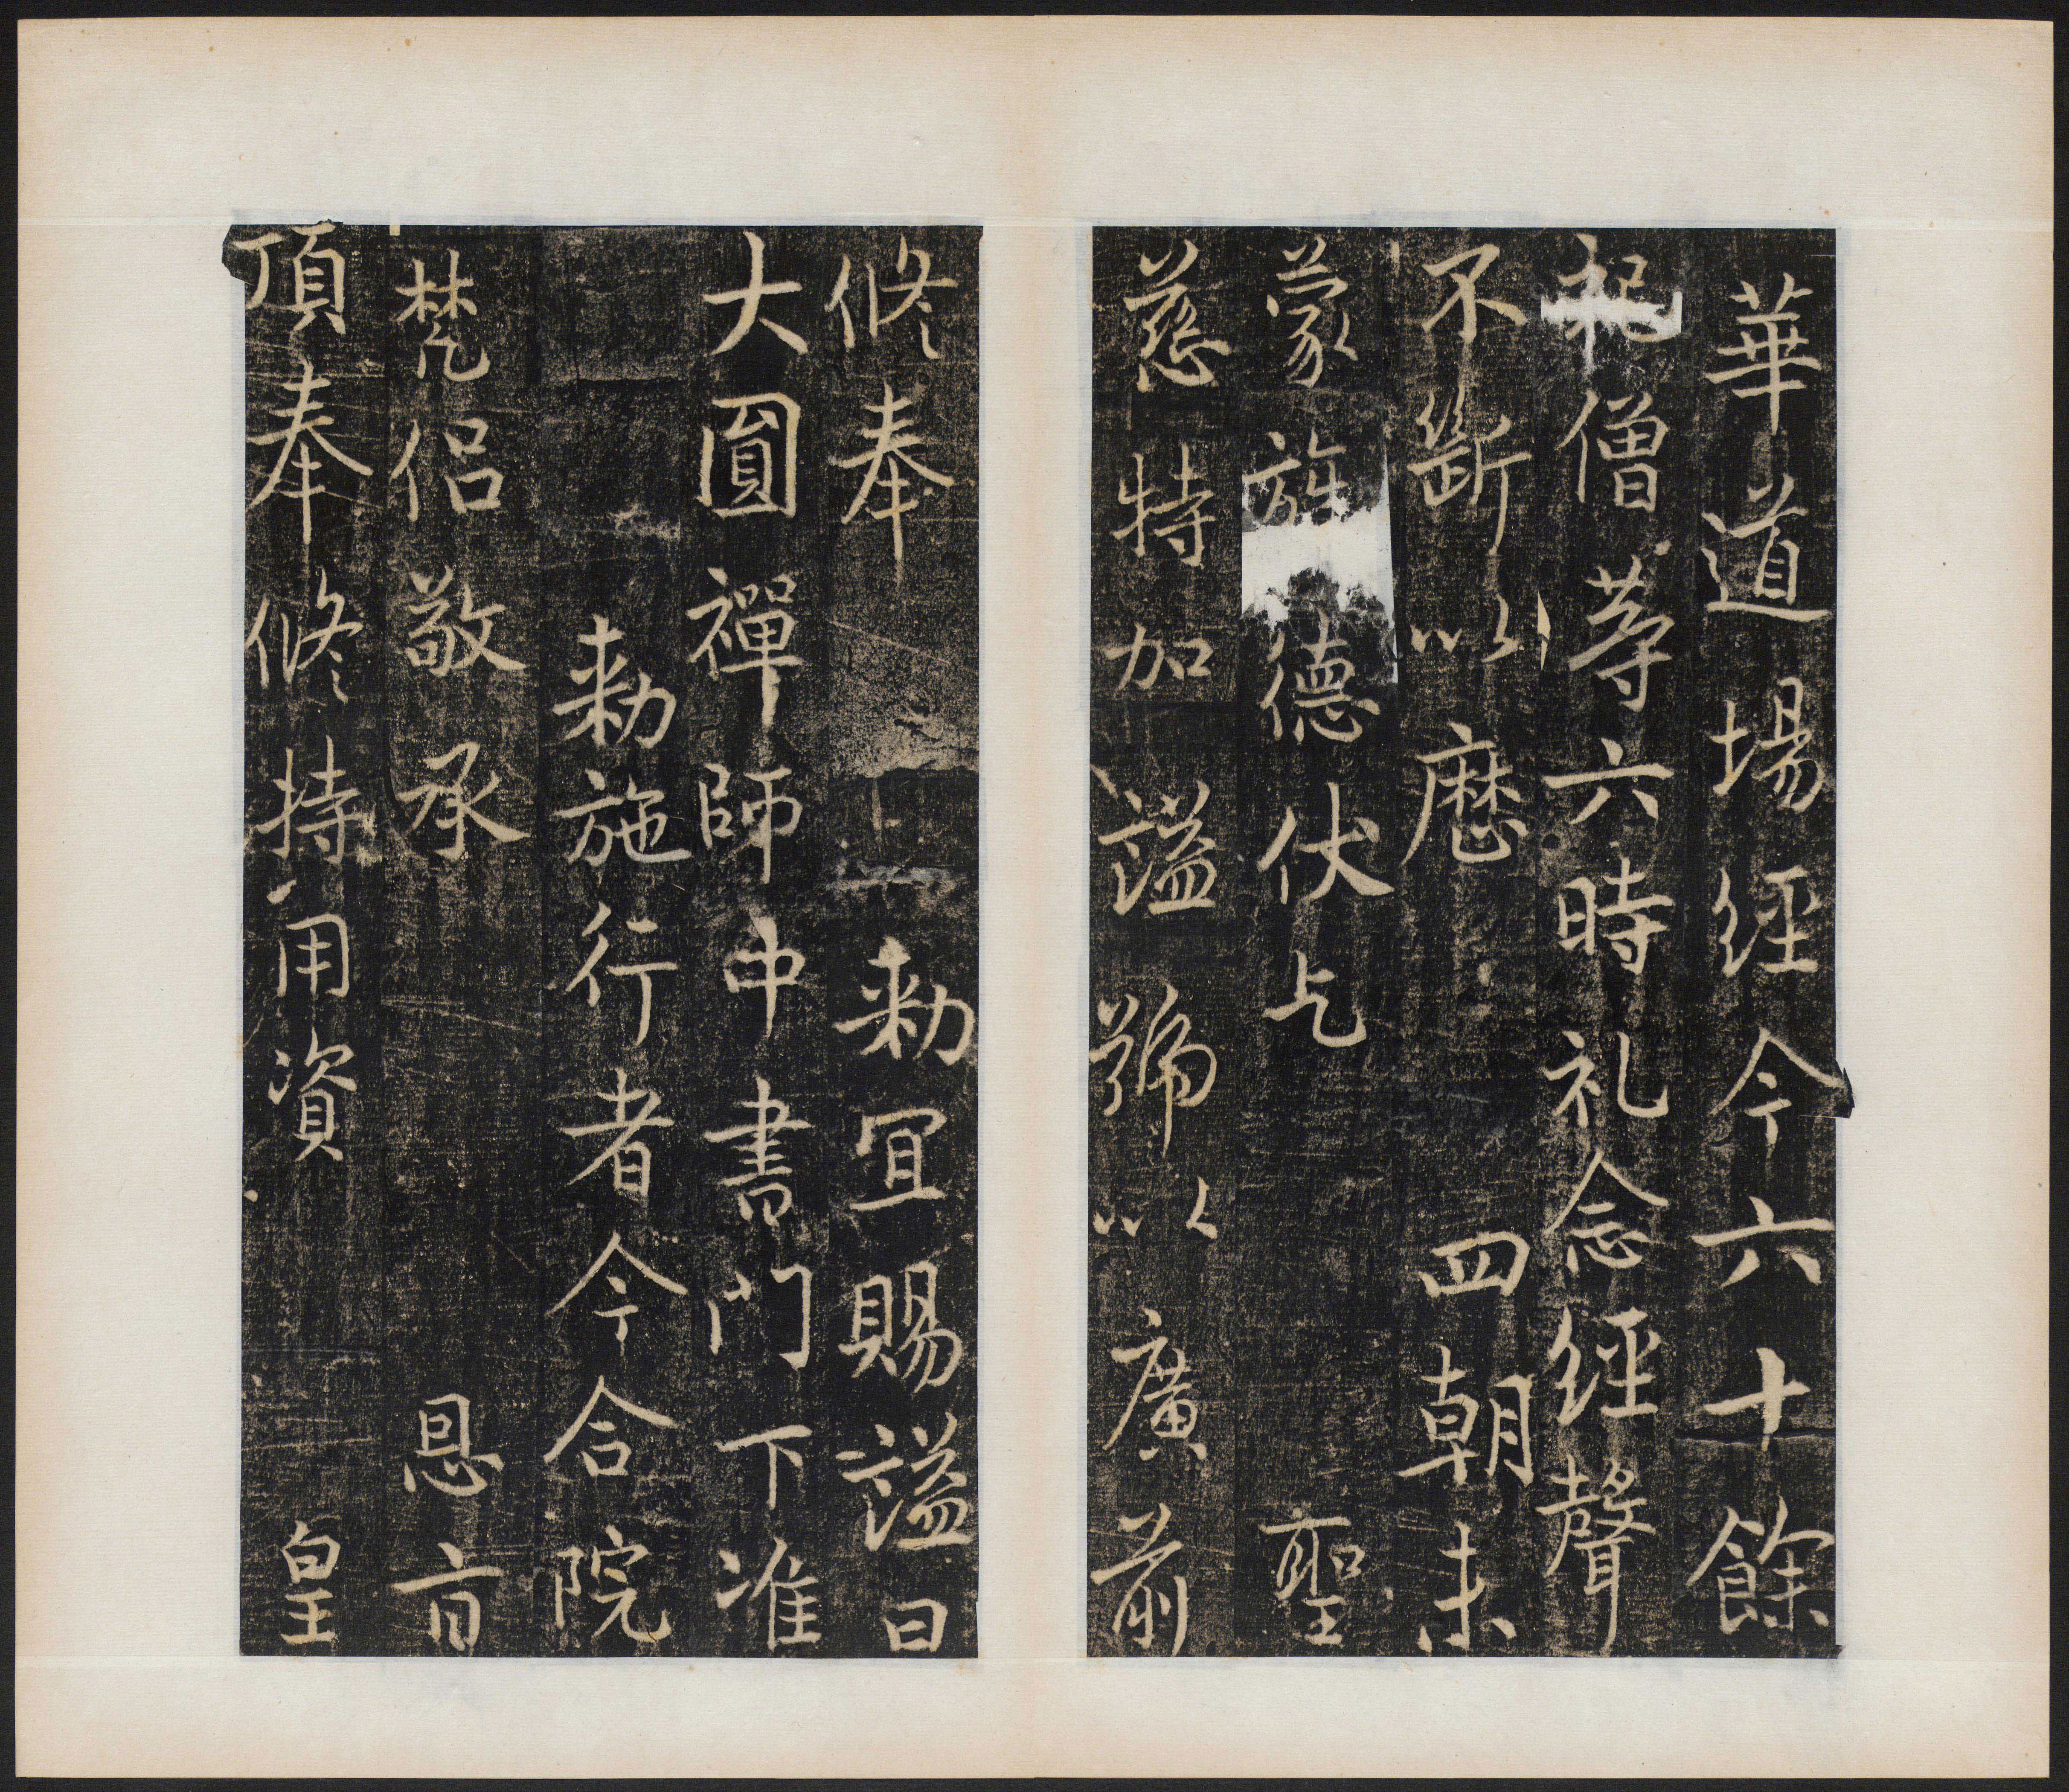 華道場經今六十餘
祀僧等六時礼念經聲
不斷以歷四朝未
蒙旌德伏乞聖
慈特加謚號以廣前
修奉敕宜賜謚曰
大圓禪師中書門下准
敕施行者今合院
梵侶敬承恩旨
頂奉修持用資皇